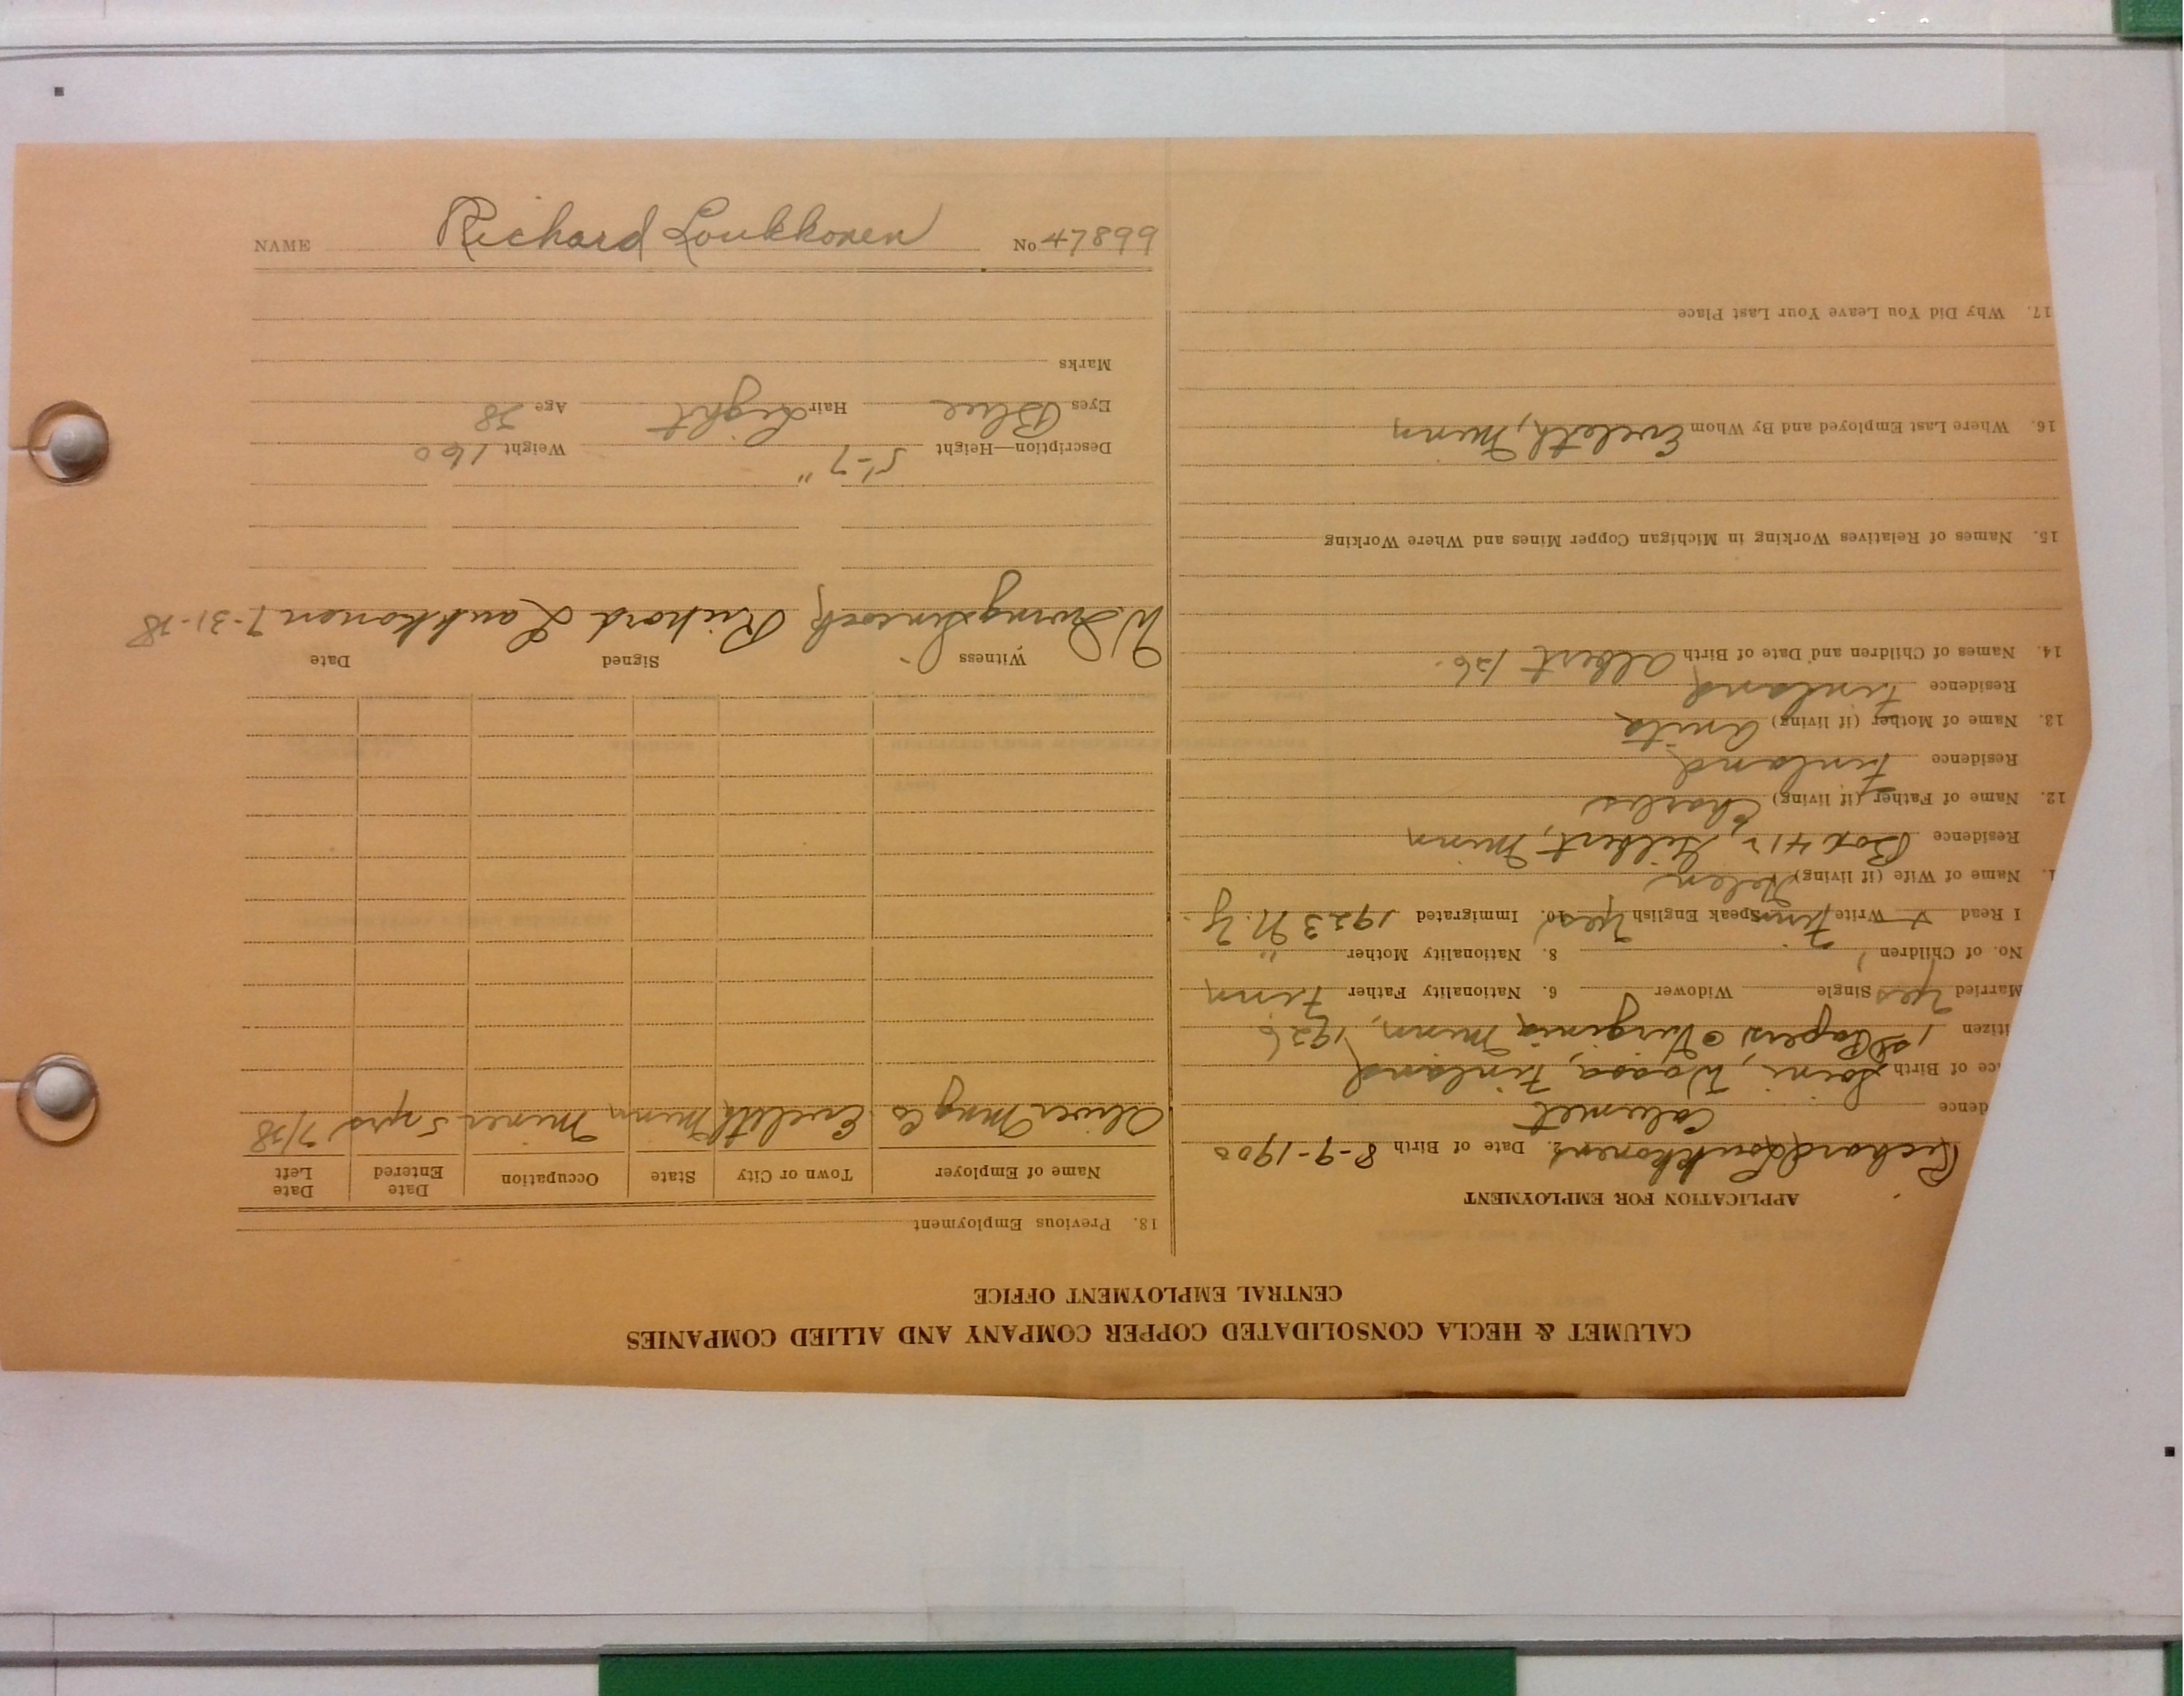 NAME Richard Loukkonen No 47899
CALUMET & HECLA CONSOLIDATED COPPER COMPANY AND ALLIED COMPANIES
CENTRAL EMPLOYMENT OFFICE
APPLICATION FOR EMPLOYMENT
Richard Loukkonen 2. Date of Birth 8-9-1900
dence Calumet
ce of Birth Soini, Waasa, Finland
itizen 1st Papers Virginia Minn, 1926
Married Yes Single Widower 6. Nationality Father Finn
No. of Children 1 8. Nationality Mother "
I Read Write Finn Speak English Yes 10. Immigrated 1923 N.Y.
1. Name of Wife (if living) Helen
Residence Box 412, Gilbert, Minn
12. Name of Father (if living) Charles
Residence Finland
13. Name of Mother (if living) Anita
Residence Finland
14. Names of Children and Date of Birth Albert 126.
15. Names of Relatives Working in Michigan Copper Mines and Where Working
16. Where Last Employed and By Whom Eveleth, Minn
17. Why Did You Leave Your Last Place
18. Previous Employment
Name of Employer Town or City State Occupation Date Entered Date Left
Oliver Mng Co Eveleth Minn Miner 5 yrs 7/38
Witness Signed Date
Richard Laukkonen 7-31-38
Description—Height 5'-7" Weight 160
Eyes Blue Hair Light Age 38
Marks